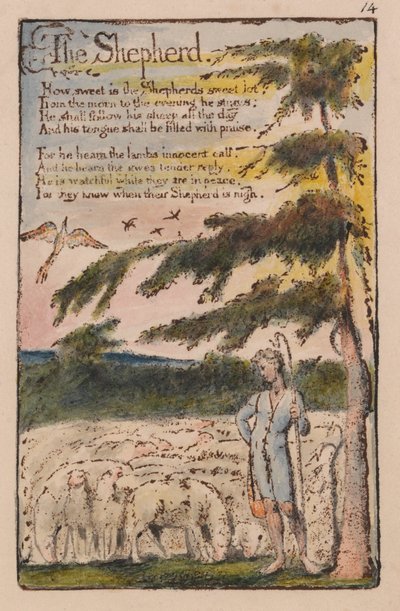 14
The Shepherd.
How sweet is the Shepherds sweet lot,
From the morn to the evening he strays:
He shall follow his sheep all the day
And his tongue shall be filled with praise.
For he hears the lambs innocent call.
And he hears the ewes tender reply.
He is watchful while they are in peace,
For they know when their Shepherd is nigh.